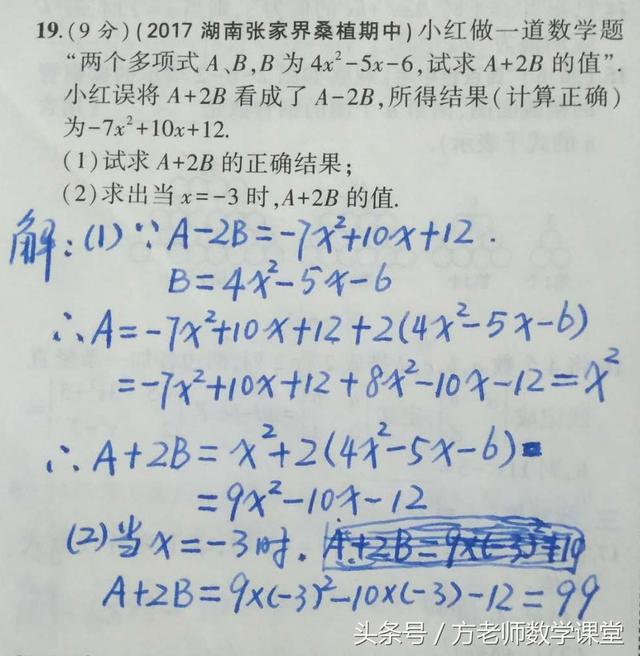 19.(9 分)(2017 湖南张家界桑植期中)小红做一道数学题
“两个多项式 A、B,B 为 4x²-5x-6,试求 A+2B 的值”.
小红误将 A+2B 看成了 A-2B,所得结果(计算正确)
为-7x²+10x+12.
(1)试求 A+2B 的正确结果;
(2)求出当 x=-3 时,A+2B 的值.
解:(1)∵A-2B=-7x²+10x+12.
B=4x²-5x-6
∴A=-7x²+10x+12+2(4x²-5x-6)
=-7x²+10x+12+8x²-10x-12=x²
∴A+2B=x²+2(4x²-5x-6)
=9x²-10x-12
(2)当x=-3时. A+2B=9×(-3)²+10
A+2B=9×(-3)²-10×(-3)-12=99
头条号 / 方老师数学课堂